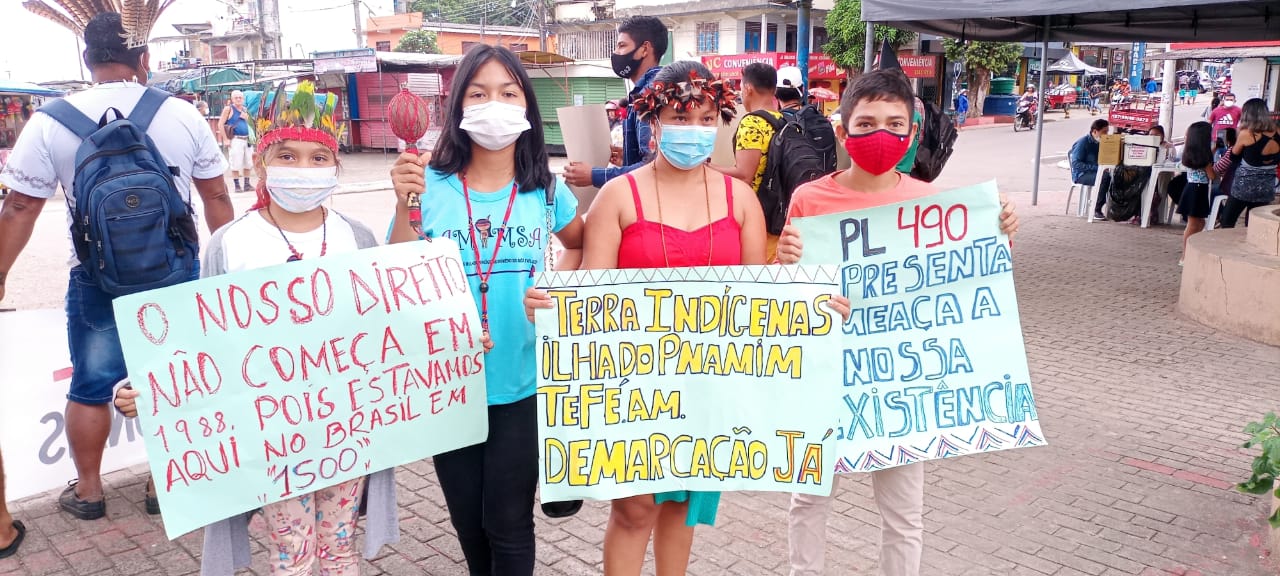 O NOSSO DIREITO
NÃO COMEÇA EM
1988, POIS ESTAVAMOS
AQUI NO BRASIL EM
"1500"
TERRA INDÍGENAS
ILHA DO PNAMIM
TEFÉ.AM.
DEMARCAÇÃO JÁ
PL 490
PRESENTA
MEAÇA A
NOSSA
EXISTÊNCIA
CONVENIÊNCIA